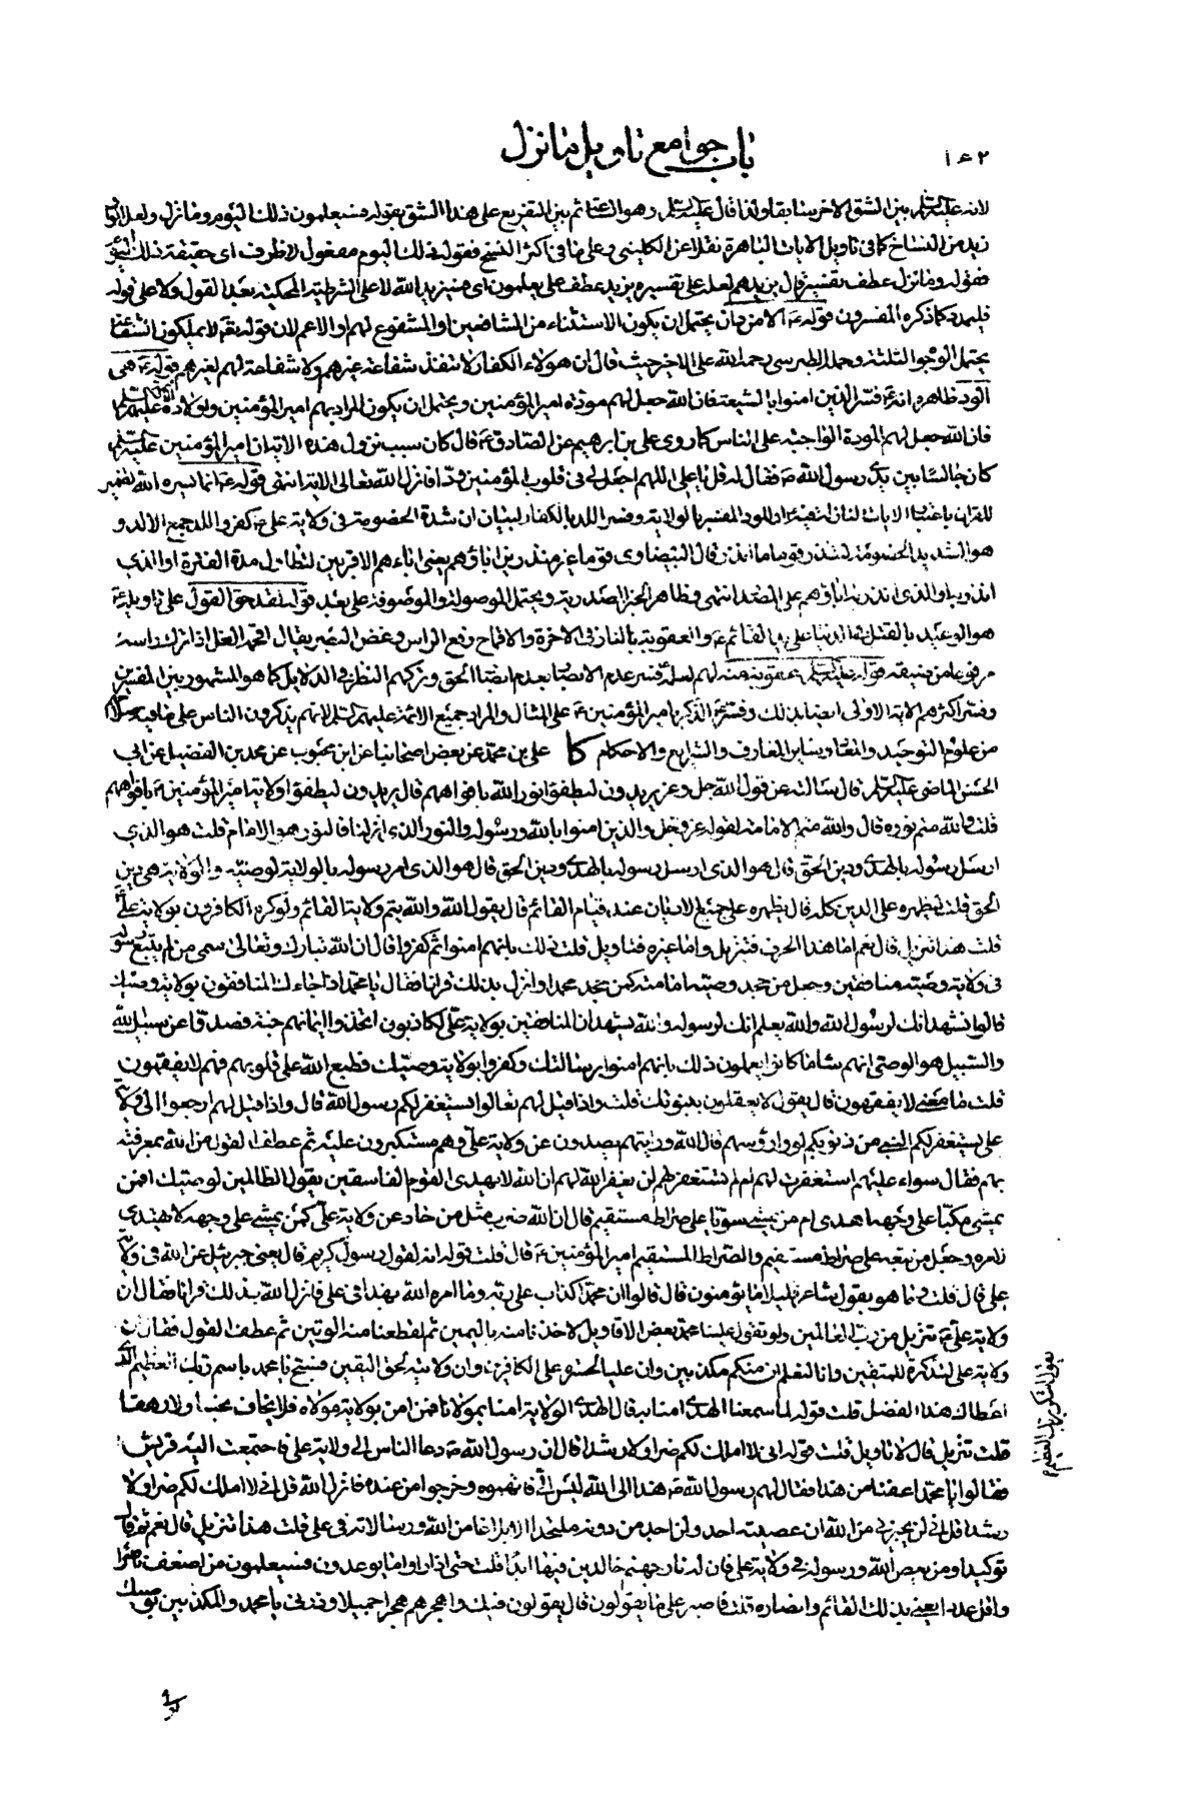 ١٠٤٢
باب جوامع تاويل ما نزل
لانه عليه السلم بين الشق الاخر سابقا ولذا قال عليه السلم وهو الساعة ثم بين التفريع على هذا الشق بقوله فسيعلمون ذلك اليوم وما نزل ولعل الواو
زيد من النساخ كما في تاويل الايات الباهرة نقلا عن الكليني وعلى ما في اكثر النسخ فقوله ذلك اليوم مفعول لا ظرف اى حقيقة ذلك اليوم
فقوله وما نزل عطف تفسير قال يزيدهم لعله على تفسيره يزيد عطف على يعلمون اى فسيزيد الله لا على الشرطية المحكية بعد القول ولا على قوله
فليمدد كما ذكره المفسرون قوله ع الا من دان يحتمل ان يكون الاستثناء من الشافعين او المشفوع لهم او الاعم لان قوله تع لا يملكون الشفاعة
يحتمل الوجوه الثلثة وحمله الطبرسى رحمه الله على الاخر حيث قال ان هؤلاء الكفار لا تنفذ شفاعة غيرهم ولا شفاعة لهم لغيرهم قوله ع هى
الود ظاهره انه ع فسر الذين امنوا بالشيعة فان الله جعل لهم مودة امير المؤمنين ويحتمل ان يكون المراد بهم امير المؤمنين واولاده عليهم السلم
فان الله جعل لهم المودة الواجبة على الناس كما روى على بن ابرهيم عن الصادق ع قال كان سبب نزول هذه الاية ان امير المؤمنين عليه السلم
كان جالسا بين يدى رسول الله ص فقال له قل يا على اللهم اجعل لى في قلوب المؤمنين ودا فانزل الله تعالى الاية انتهى قوله ع انما يسره الله الضمير
للقران باعتبار الايات النازلة
هو الشديد الخصومة لتنذر قوما ما انذر قال البيضاوى قوما غير منذر يعنى اباءهم الاقربين لتطاول مدة الفترة او الذى
هو الوعيد بالقتل في الدنيا على يد القائم ع والعقوبة بالنار في الاخرة والاقماح رفع الراس وغض البصر يقال اقمحه الغل اذا ترك راسه
مرفوعا من ضيقه قوله عليه السلم عقوبة منه لهم لعله فسر عدم الابصار بعدم ابصار الحق وتركهم النظر في الدلايل كما هو المشهور بين المفسرين
وفسر اكثرهم الاية الاولى ايضا بذلك وفسر ع الذكر بامير المؤمنين ع على المثال والمراد جميع الائمة عليهم السلم لانهم يذكرون الناس
من علوم التوحيد والمعاد وساير المعارف والشرايع والاحكام كا على بن محمد عن بعض اصحابنا عن ابن محبوب عن محمد بن الفضيل عن ابى
الحسن الماضى عليه السلم قال سالته عن قول الله جل وعز يريدون ليطفؤا نور الله بافواههم قال يريدون ليطفؤا ولاية امير المؤمنين ع بافواههم
قلت والله متم نوره قال والله متم الامامة لقوله عز وجل والذين امنوا بالله ورسوله والنور الذى انزلنا فالنور هو الامام قلت هو الذى
ارسل رسوله بالهدى ودين الحق قال هو الذى ارسل رسوله بالهدى ودين الحق قال هو الذى امر رسوله بالولاية لوصيه والولاية هى دين
الحق قلت ليظهره على الدين كله قال يظهره على جميع الاديان عند قيام القائم قال يقول الله والله متم ولاية القائم ولو كره الكافرون بولاية على
قلت هذا تنزيل قال نعم اما هذا الحرف فتنزيل واما غيره فتاويل قلت ذلك بانهم امنوا ثم كفروا قال ان الله تبارك وتعالى سمى من لم يتبع رسوله
في ولاية وصيه منافقين وجعل من جحد وصيته امامته كمن جحد محمدا وانزل بذلك قرانا فقال يا محمد اذا جاءك المنافقون بولاية وصيك
قالوا نشهد انك لرسول الله والله يعلم انك لرسوله والله يشهد ان المنافقين بولاية على لكاذبون اتخذوا ايمانهم جنة فصدوا عن سبيل الله
والسبيل هو الوصى انهم ساء ما كانوا يعملون ذلك بانهم امنوا برسالتك وكفروا بولاية وصيك فطبع الله على قلوبهم فهم لا يفقهون
قلت ما معنى لا يفقهون قال يقول لا يعقلون بنبوتك قلت واذا قيل لهم تعالوا يستغفر لكم رسول الله قال واذا قيل لهم ارجعوا الى ولاية
على يستغفر لكم النبى من ذنوبكم لووا رؤسهم قال الله ورايتهم يصدون عن ولاية على وهم مستكبرون عليه ثم عطف القول من الله بمعرفته
بهم فقال سواء عليهم استغفرت لهم ام لم تستغفر لهم لن يغفر الله لهم ان الله لا يهدى القوم الفاسقين يقول الظالمين لوصيك افمن
يمشى مكبا على وجهه اهدى ام من يمشى سويا على صراط مستقيم قال ان الله ضرب مثل من حاد عن ولاية على كمن يمشى على وجهه لا يهتدى
لامره وجعل من تبعه على صراط مستقيم والصراط المستقيم امير المؤمنين ع قال قلت قوله انه لقول رسول كريم قال يعنى جبرئيل عن الله في ولاية
على قال قلت وما هو بقول شاعر قليلا ما يؤمنون قال قالوا ان محمدا كذاب على ربه وما امره الله بهذا في على فانزل الله بذلك قرانا فقال ان
ولاية على ع تنزيل من رب العالمين ولو تقول علينا محمد بعض الاقاويل لاخذنا منه باليمين ثم لقطعنا منه الوتين ثم عطف القول فقال ان
ولاية على لتذكرة للمتقين وانا لنعلم ان منكم مكذبين وان عليا لحسرة على الكافرين وان ولايته لحق اليقين فسبح يا محمد باسم ربك العظيم الذى
اعطاك هذا الفضل قلت قوله لما سمعنا الهدى امنا به قال الهدى الولاية امنا بمولانا فمن امن بولاية مولاه فلا يخاف بخسا ولا رهقا
قلت تنزيل قال لا تاويل قلت قوله انى لا املك لكم ضرا ولا رشدا قال ان رسول الله ص دعا الناس الى ولاية على فاجتمعت اليه قريش
فقالوا يا محمد اعفنا من هذا فقال لهم رسول الله ص هذا الى الله ليس الى فاتهموه وخرجوا من عنده فانزل الله قل انى لا املك لكم ضرا ولا
رشدا قل انى لن يجيرنى من الله ان عصيته احد ولن اجد من دونه ملتحدا الا بلاغا من الله ورسالاته في على قلت هذا تنزيل قال نعم ثم قال
توكيدا ومن يعص الله ورسوله في ولاية على فان له نار جهنم خالدين فيها ابدا قلت حتى اذا راوا ما يوعدون فسيعلمون من اضعف ناصرا
واقل عددا يعنى بذلك القائم وانصاره قلت فاصبر على ما يقولون قال يقولون فيك واهجرهم هجرا جميلا وذرنى يا محمد والمكذبين بوصيك
يقول اشكر ربك العظيم